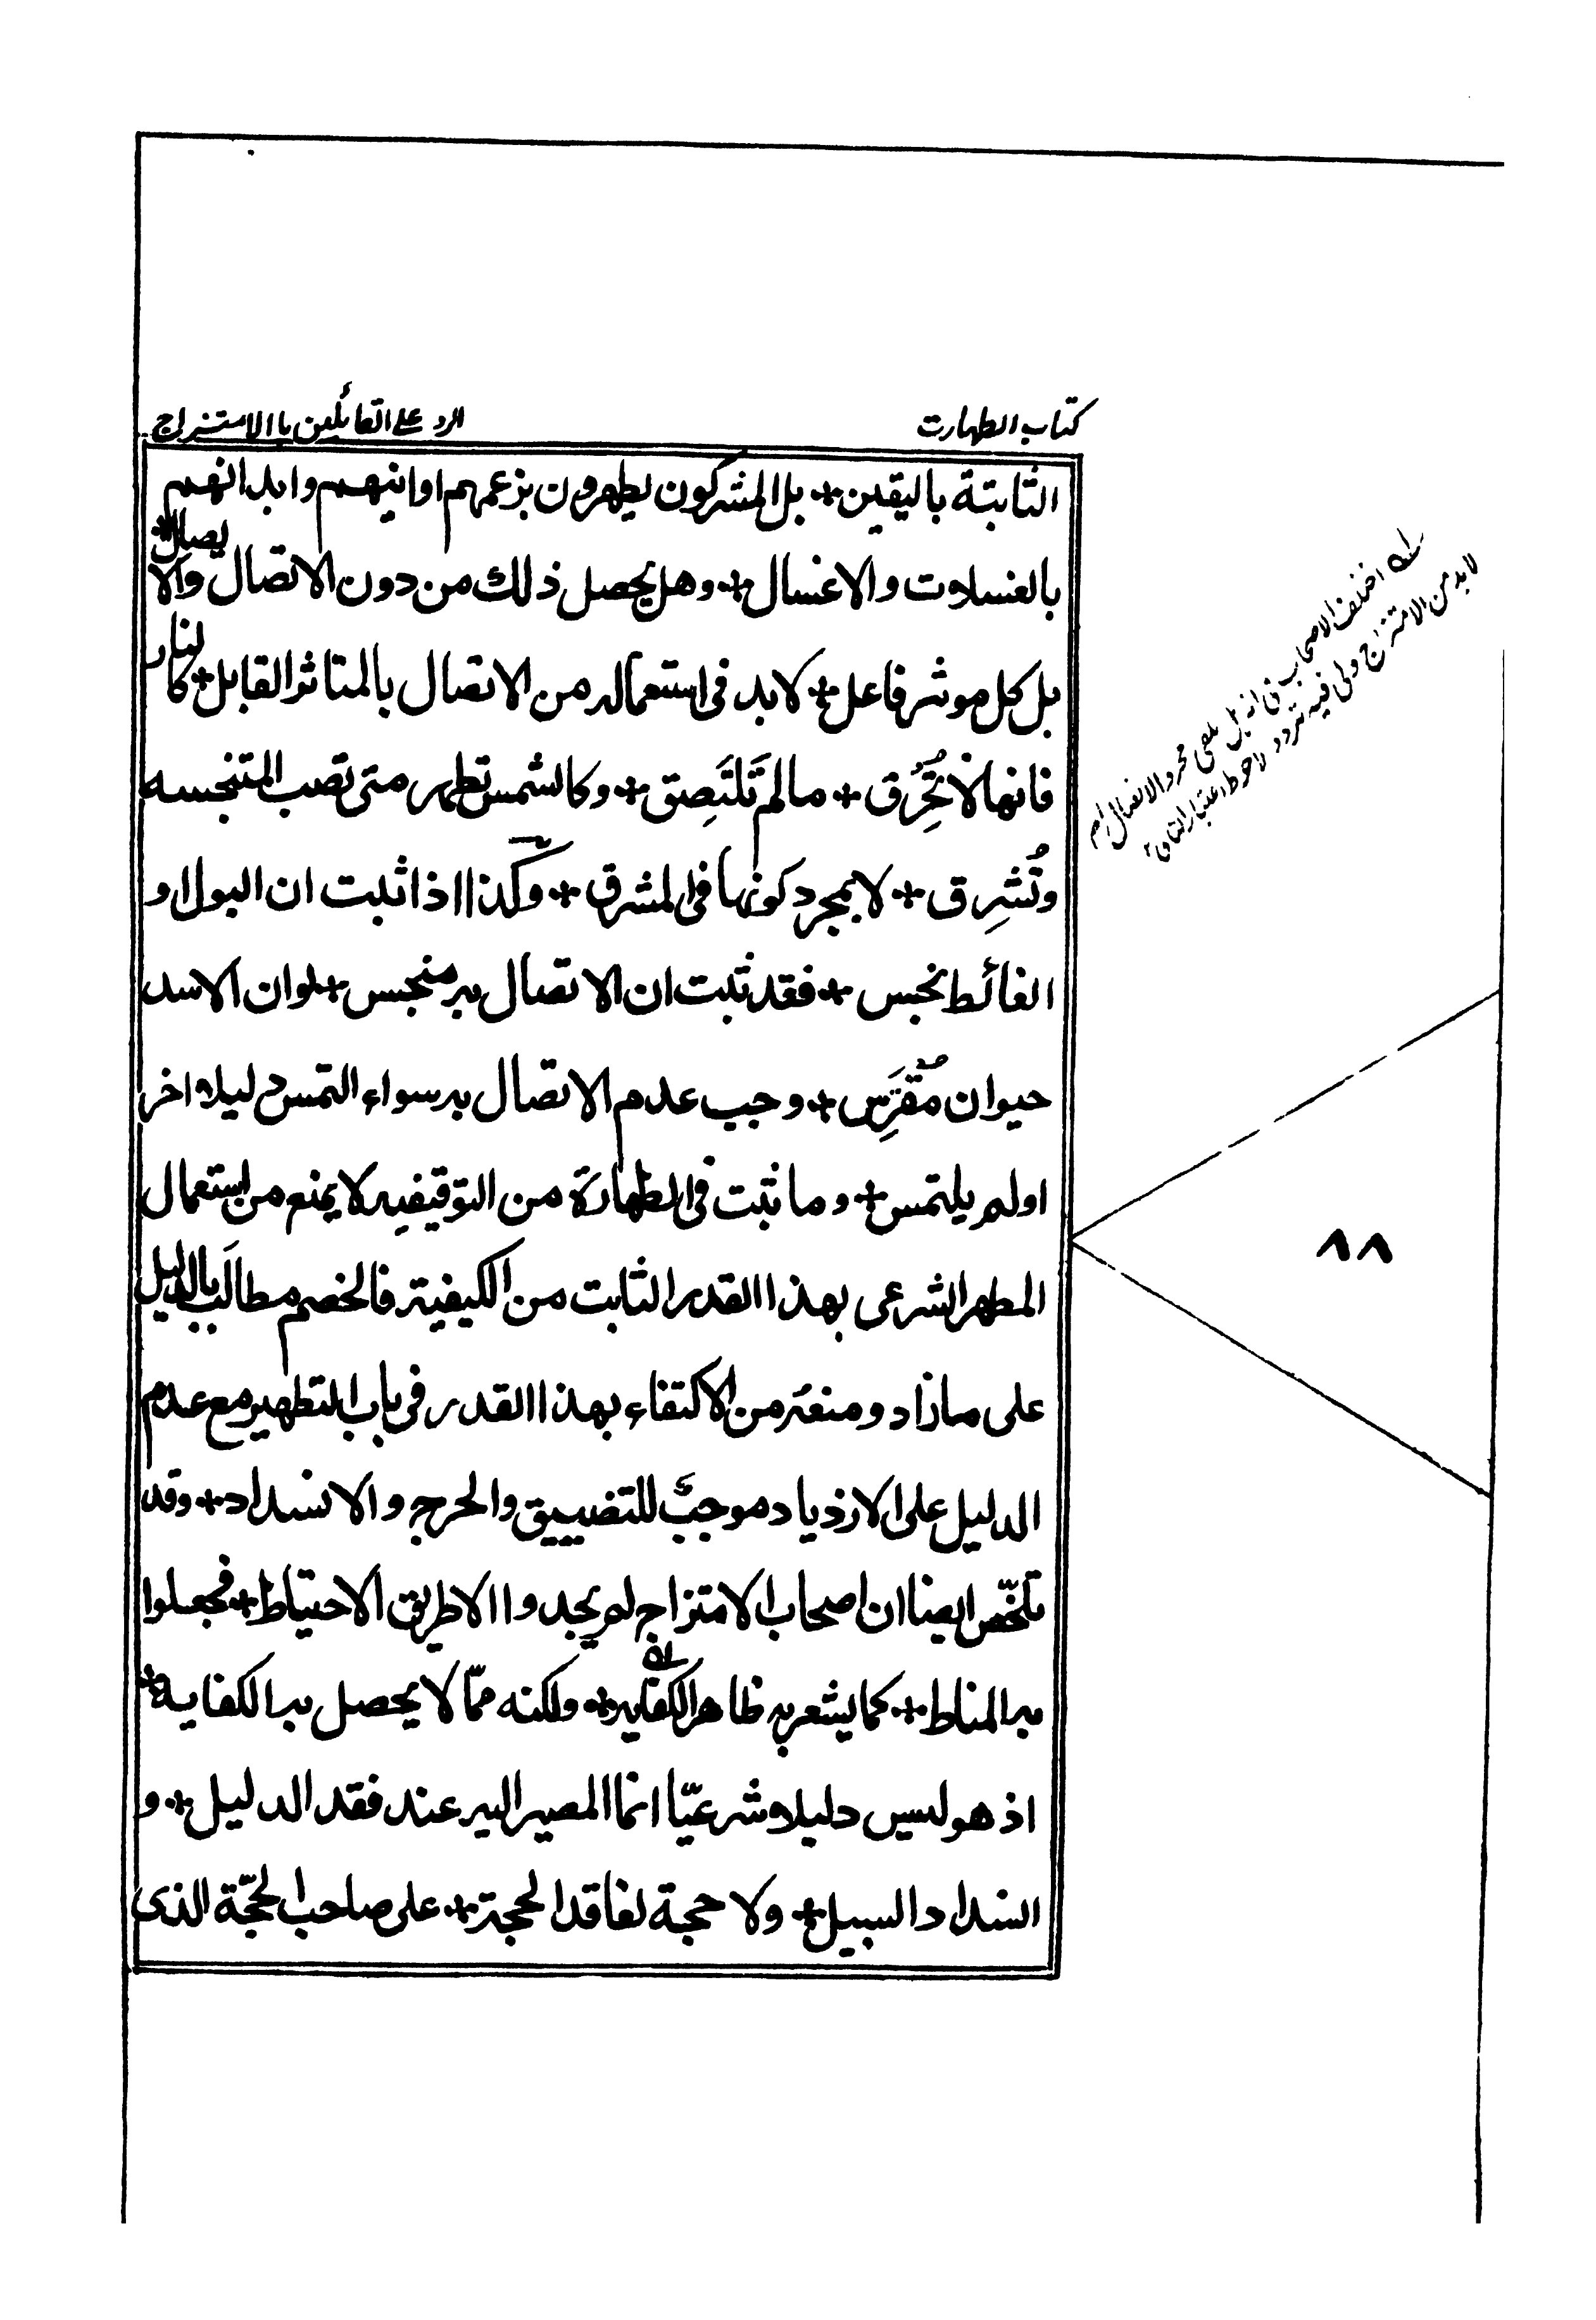 كتاب الطهارت
الرد على القائلين با الامتزاج
الثابتة باليقين + بل المشركون يطهرون بزعمهم اوانيهم وابدانهم
بالغسلات والاغسال + وهل يحصل ذلك من دون الاتصال والايصال +
بل كل موثر فاعل + لا بد في استعماله من الاتصال بالمتاثر القابل + كالنار
فانها لا تُحرِق + ما لم تَلتَصِق + وكالشمس تطهر متى تصب المتنجسه
وتُشرِق + لا بمجرد كونها في المشرق + وكذا اذا ثبت ان البول او
الغائط نجس + فقد ثبت ان الاتصال به منجس + لو ان الاسد
حيوان مُفتَرِس + وجب عدم الاتصال به سواء التمس دليلا اخر
اولم يلتمس + وما ثبت في الطهارة من التوقيفيه لا يمنع من استعمال
المطهر الشرعى بهذا القدر الثابت من الكيفية فالخصم مطالَب بالدليل
على ما زاد ومنعه من الاكتفاء بهذا القدر في باب التطهير مع عدم
الدليل على الازدياد موجب للتضييق والحرج والانسداد + وقد
تلخّص ايضا ان اصحاب الامتزاج لم يجدوا الا طريق الاحتياط + فجعلوا
به المناط + كما يشعر به ظاهر الكفاية + ولكنه ممّا لا يحصل به الكفايه +
اذ هو ليس دليلا شرعيّا انما المصير اليه عند فقد الدليل + و
انسداد السبيل + ولا حجة لفاقد الحجة + على صاحب الحجّة الذى
اختلف الاصحاب فى انه بل يكفى مجرد الاتصال ام
لا بد من الامتزاج ولى فيه تردد لاحوط اعتبار الثانى
٨٨